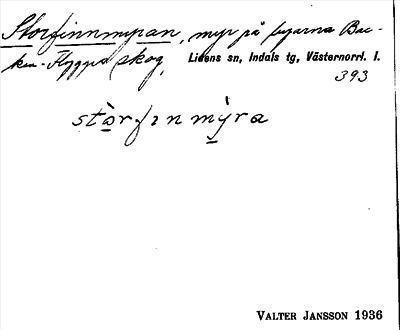 Storfinnmyran, myr på byarna Bac-
ken-Flygges skog,
Lidens sn, Indals tg, Västernorrl. l.
393
stòrfın mỳra
VALTER JANSSON 1936